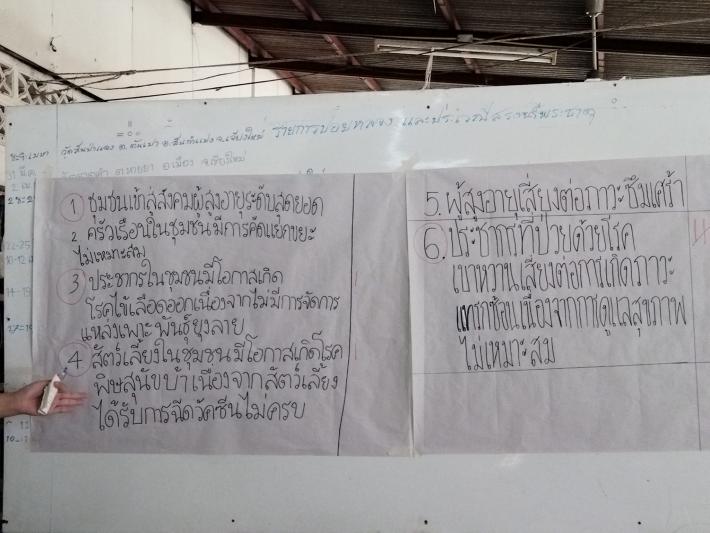 รายการปอยหลวง และประเวณีสรงน้ำพระธาตุ
1 ชุมชนเข้าสู่สังคมผู้สูงอายุระดับสุดยอด
2. ครัวเรือนในชุมชนมีการคัดแยกขยะ
ไม่เหมาะสม
3 ประชากรในชุมชนมีโอกาสเกิด
โรคไข้เลือดออกเนื่องจากไม่มีการจัดการ
แหล่งเพาะพันธุ์ยุงลาย
4 สัตว์เลี้ยงในชุมชนมีโอกาสเกิดโรค
พิษสุนัขบ้าเนื่องจากสัตว์เลี้ยง
ได้รับการฉีดวัคซีนไม่ครบ
5. ผู้สูงอายุเสี่ยงต่อภาวะซึมเศร้า
6. ประชากรที่ป่วยด้วยโรค
เบาหวานเสี่ยงต่อการเกิดภาวะ
แทรกซ้อนเนื่องจากการดูแลสุขภาพ
ไม่เหมาะสม